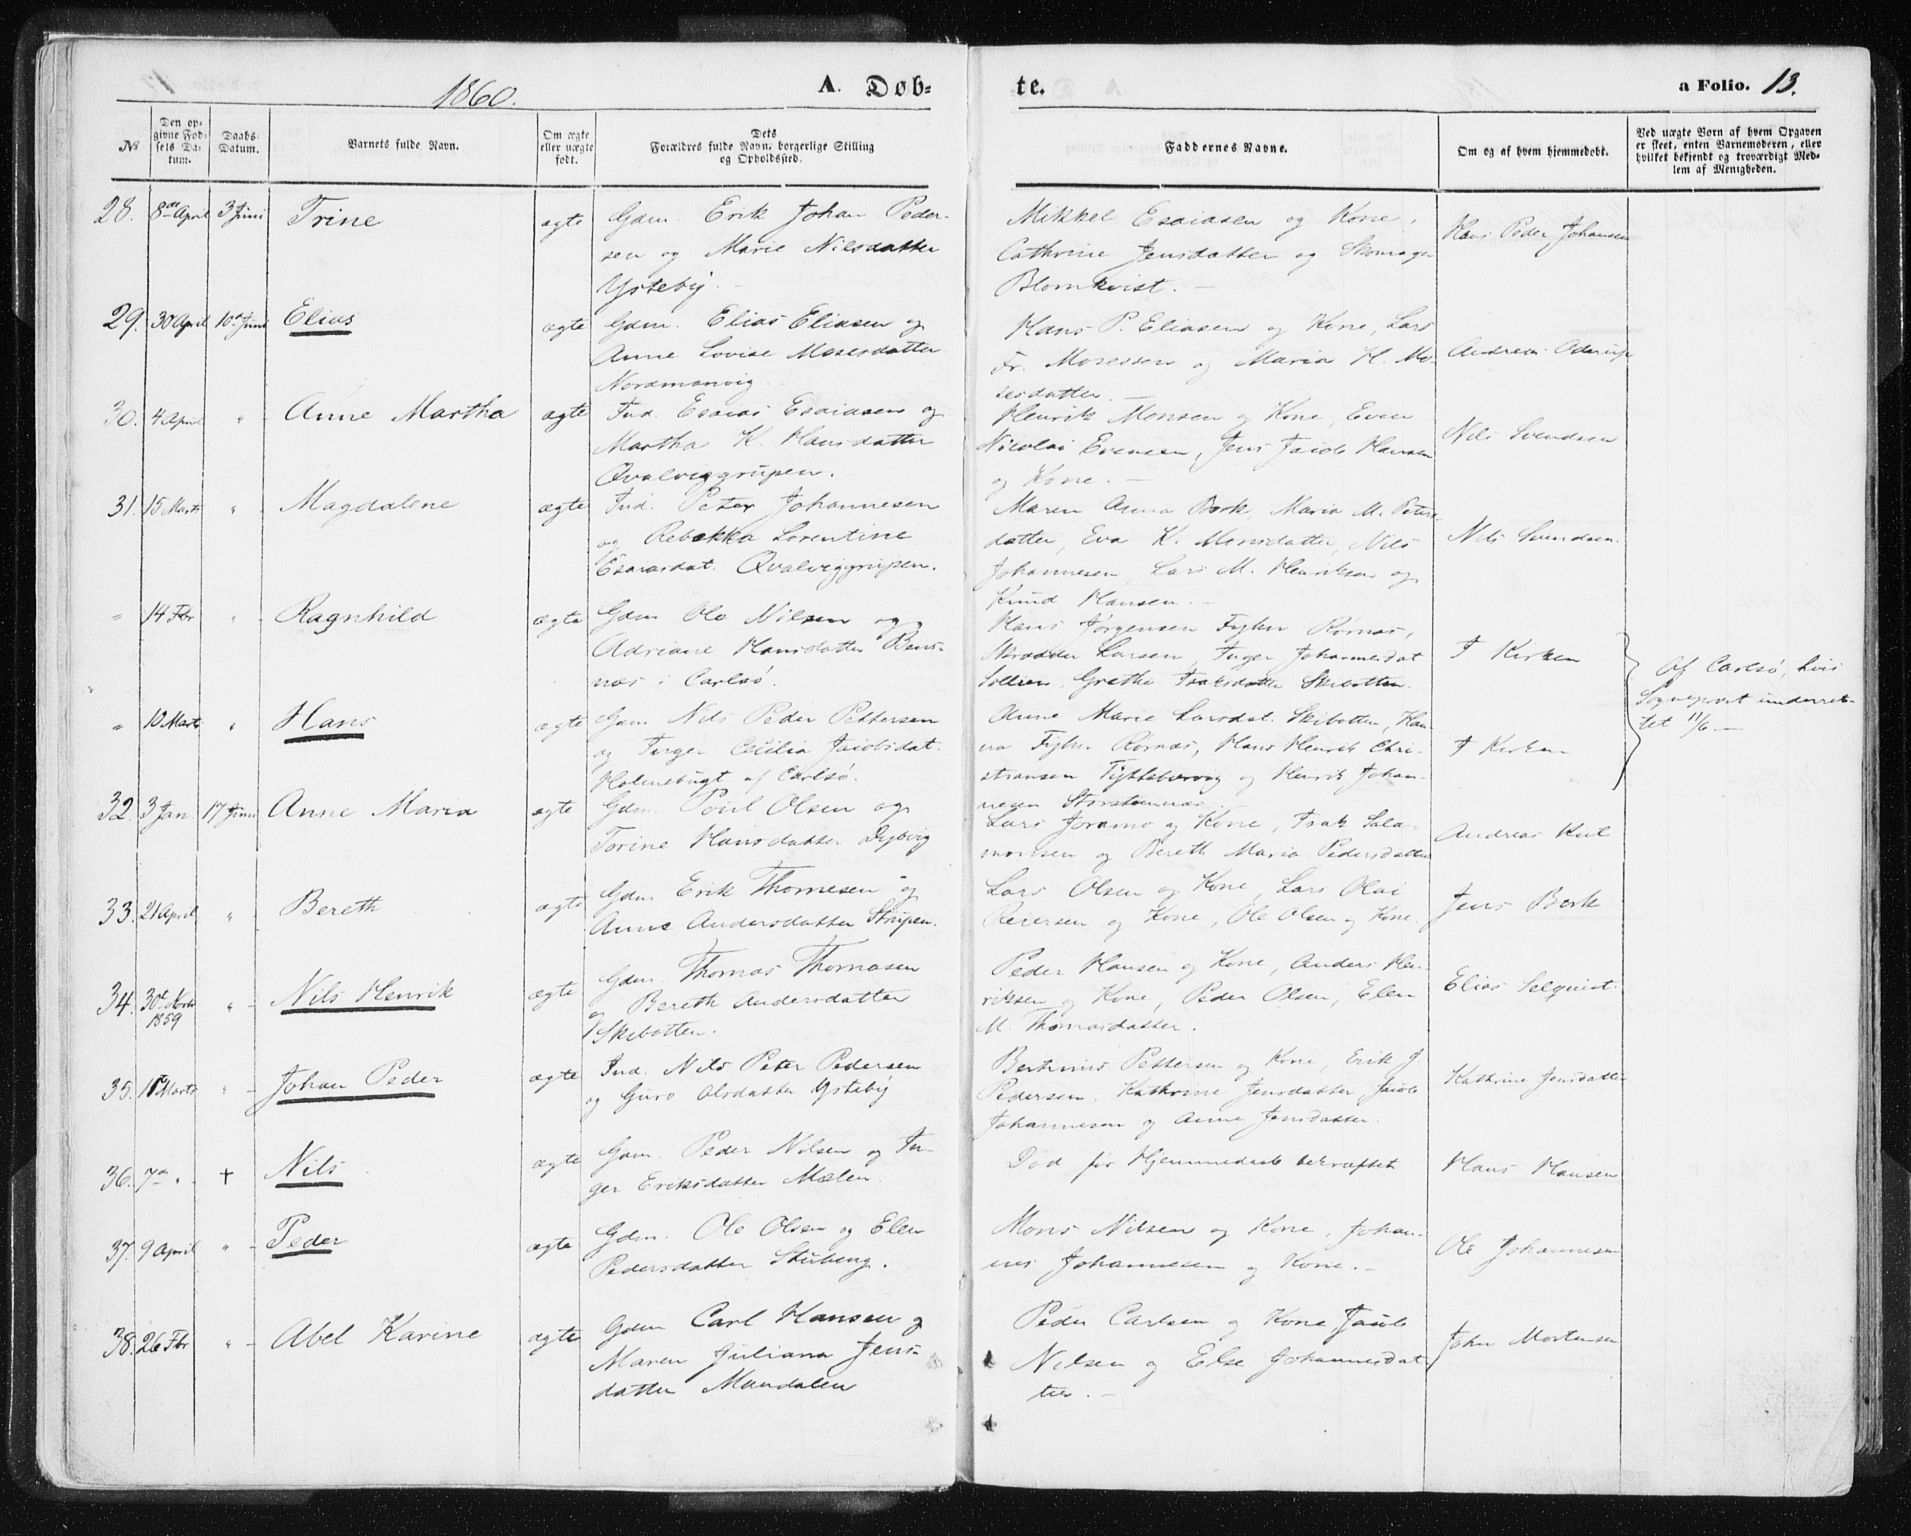 1860.
A. Døb=
te.
a Folio. 13.
№
Den op-
givne Fød-
sels Da-
tum.
Daabs
Datum.
Barnets fulde Navn.
Om ægte
eller uægte
født.
Dets
Forældres fulde Navn, borgerlige Stilling
og Opholdssted.
Faddernes Navne.
Om og af hvem hjemmedøbt.
Ved uægte Børn af hvem Opgaven
er skeet, enten Barnemoderen, eller
hvilket bekjendt og troværdigt Med-
lem af Menigheden.
28. 8de April 3 Juni Trine ægte Gdm. Erik Johan Peder-
sen og Marie Nilsdatter
Ysteby.
Mikkel Esaiasen og Kone,
Cathrine Jensdatter og Skomager
Blomkvist. —
Hans Peder Johansen
29. 30 April 10de Juni Elias ægte Gdm. Elias Eliasen og
Anne Lovise Mosesdatter
Nordmanvig.
Hans P. Eliasen og Kone, Lars
Fr. Mosessen og Maria H. Mo-
sesdatter. —
Andreas
30. 4 April " Anne Martha ægte Ind. Esaias Esaiasen og
Martha K. Hansdatter
Qvalviggrupen.
Henrik Monsen og Kone, Even
Nicolai Evensen, Jens Jacob Hansen
og Kone. —
Nils Svendsen
31. 15 Marts " Magdalene ægte Ind. Peter Johannesen
og Rebekka Lorentine
Esaiasdat. Qvalviggrupen.
Maren Anna Bork, Maria M. Peters
datter, Eva K. Monsdatter, Nils
Johannesen, Lars M. Henriksen og
Knud Hansen. —
Nils Svendsen.
" 14 Fbr " Ragnhild ægte Gdm. Ole Nilsen og
Adriane Hansdatter Bens-
næs i Carlsø.
Hans Jørgensen Rørnæs,
Larsen, Inger Johannesdat
Grethe Isaksdatter Skibotten.
I Kirken
Af Carlsø, hvis
Sognepræst underret-
tet 11/6 —
" 10 Marts " Hans ægte Gdm. Nils Peder Pettersen
og Inger Cecilia Jacobsdat.
Holmebugt af Carlsø.
Anne Marie Larsdat. Skibotten, Han-
na Rørnæs, Hans Henrik Chri-
stiansen og Henrik Johan-
nesen Storstennæs.
I Kirken
32. 3 Jan. 17 Juni Anne Maria ægte Gdm. Povil Olsen og
Torine Hansdatter Dybvig
Lars Joramo og Kone, Isak Sala-
monsen og Bereth Maria Pedersdatter
Andreas Kiil
33. 21 April " Bereth ægte Gdm. Erik Thomesen og
Anne Andersdatter Strupen.
Lars Olsen og Kone, Lars Olai
Reiersen og Kone, Ole Olsen og Kone.
Jens Bork
34. 30te Novbr
1859 " Nils Henrik ægte Gdm. Thomas Thomasen
og Bereth Andersdatter
Skibotten.
Peder Hansen og Kone, Anders Hen-
riksen og Kone, Peder Olsen, Elen
M. Thomasdatter.
Elias Selqvist
35. Marts " Johan Peder ægte Ind. Nils Peter Pedersen
og Guro Olsdatter Ysteby
Bertinus Pettersen og Kone, Erik J
Pedersen, Kathrine Jensdatter, Jacob
Johannesen og Anne Jensdatter.
Kathrine Jensdatter
36. 7de " + Nils ægte Gdm. Peder Nilsen og In-
ger Eriksdatter Mælen.
Død før Hjemmedaab bekræftet
Hans Hansen
37. 9 April " Peder ægte Gdm. Ole Olsen og Elen
Pedersdatter Stubeng.
Mons Nilsen og Kone, Johan-
nes Johannesen og Kone. —
Ole Johannesen
38. 26 Fbr " Abel Karine ægte Gdm Carl Hansen og
Maren Juliana Jens-
datter Mandalen
Peder Carlsen og Kone, Jacob
Nilsen og Else Johannesdat-
ter. —
John Mortensen